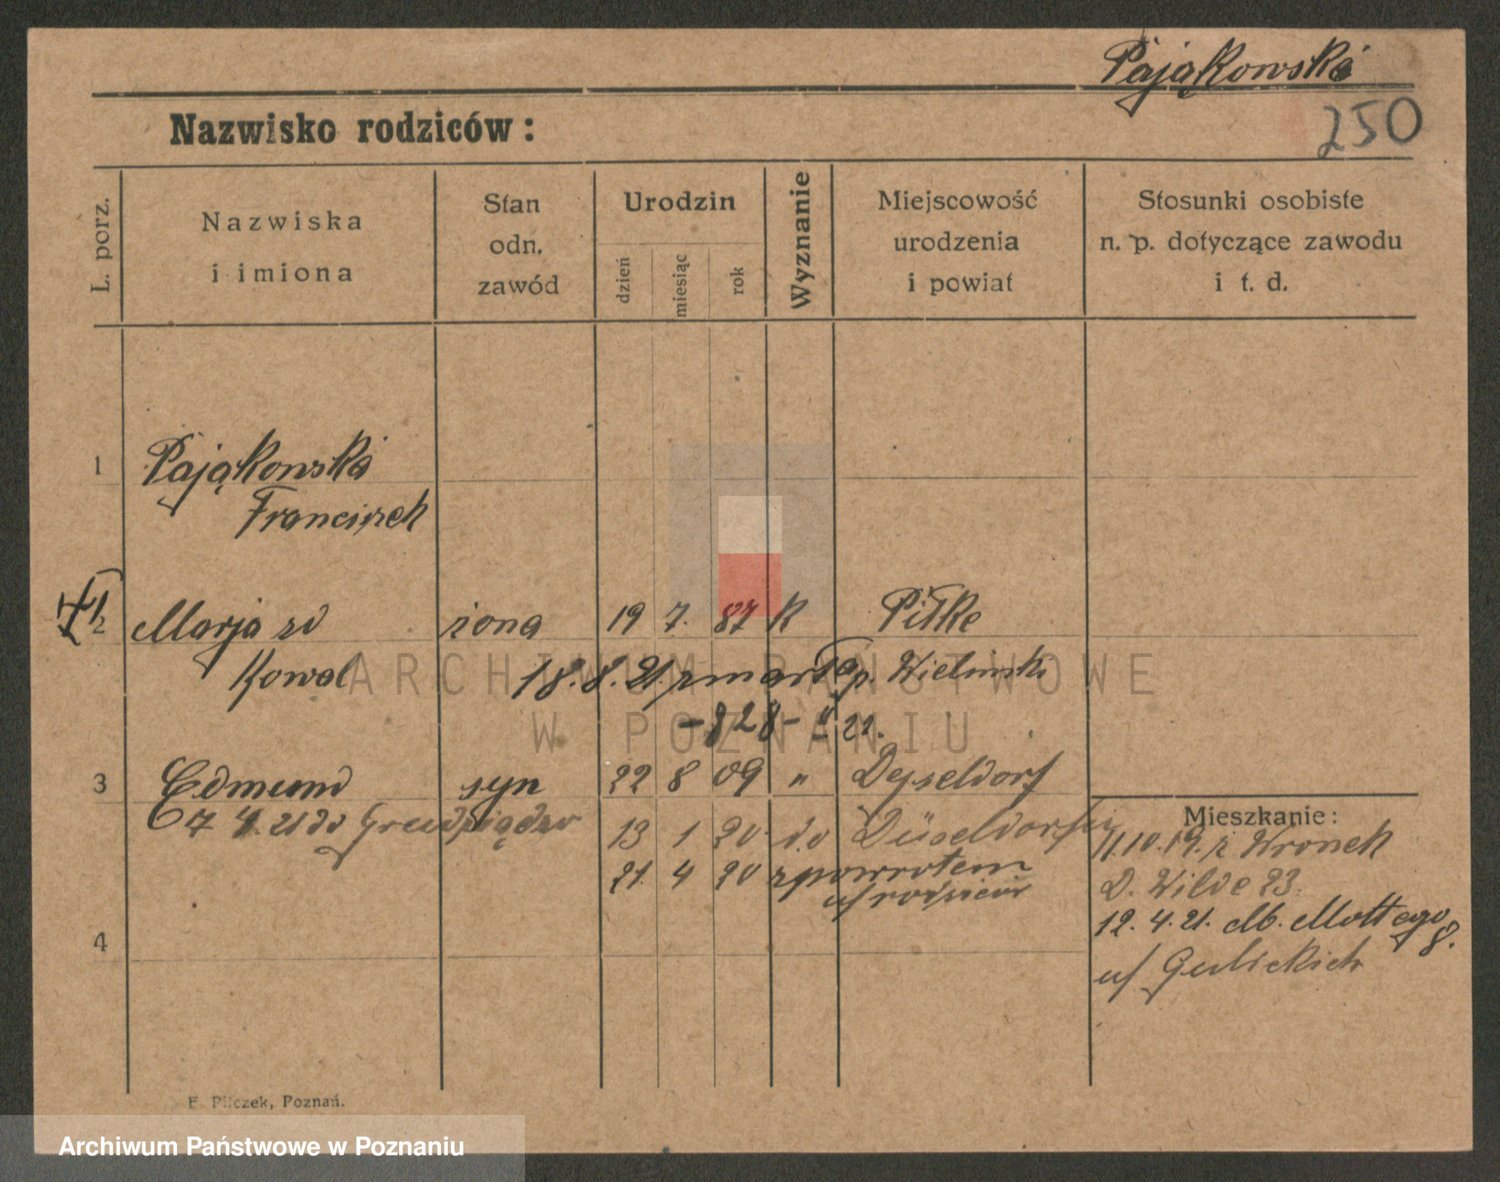 Pająkowski
250
Nazwisko rodziców:
L. porz.
Nazwiska
i imiona
Stan
odn.
zawód
Urodzin
dzień
miesiąc
rok
Wyznanie
Miejscowość
urodzenia
i powiat
Stosunki osobiste
n. p. dotyczące zawodu
i t. d.
1 Pająkowski
Franciszek
2 Marja zd żona 19 7. 87 K Piłke
Kowal 18. 8. 21. zmarła p. Wieluński
22.
3 Edmund syn 22 8 09 " Dejseldorf
7 4. 21 do Grudziądza 13 1 20 do Düseldorfu
21. 4 20 z powrotem
u/ rodziców
Mieszkanie:
11.10.19. z Wronek
D. Wilde 23.
12. 4. 21. Mottego
8.
u/ Gulickich
4
E. Pilczek, Poznań.
ARCHIWUM PAŃSTWOWE
W POZNANIU
Archiwum Państwowe w Poznaniu